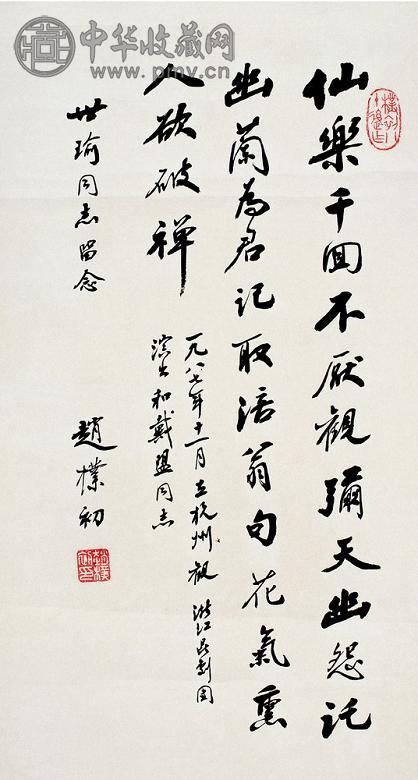 中华收藏网
www.pmv.cn
仙樂千回不厭觀彌天幽怨託
幽蘭為君記取涪翁句花氣熏
人欲破禪
一九八七年十一月在杭州觀浙江昆劇團
演出和戴盟同志
世瑜同志留念
趙樸初